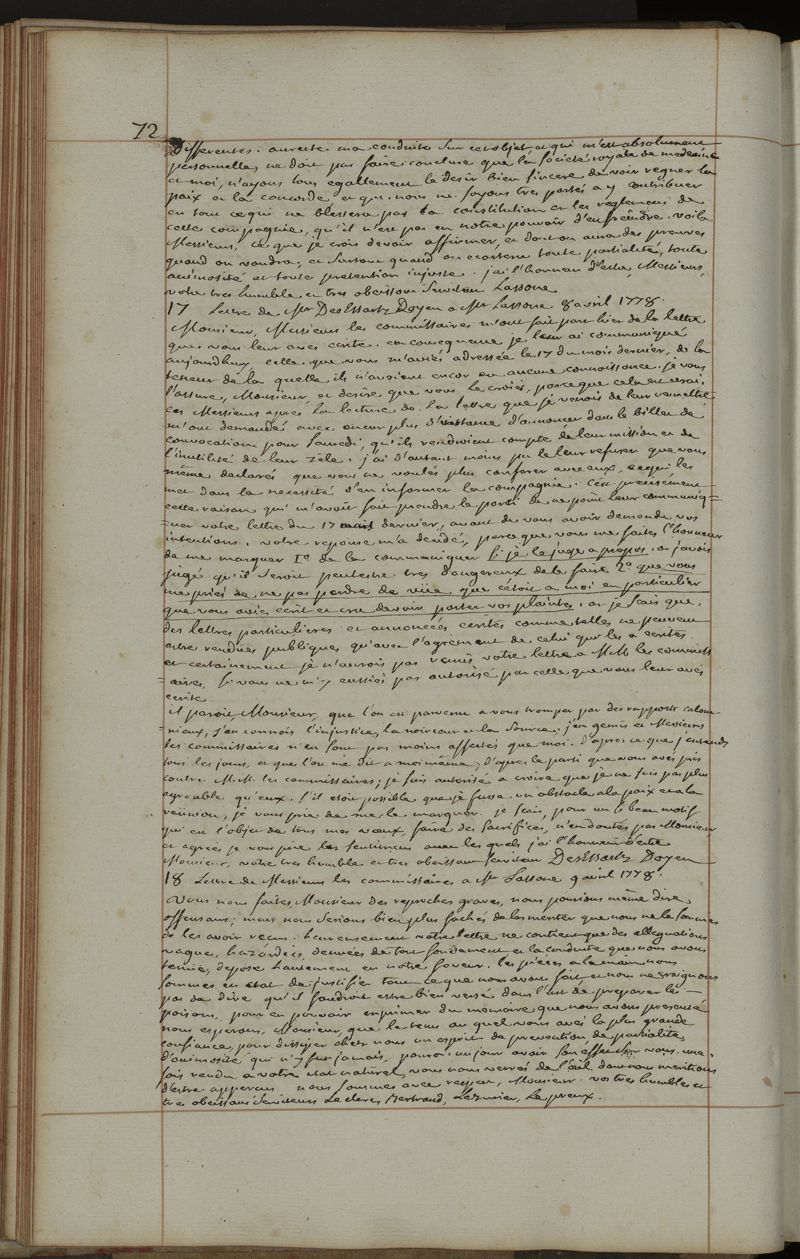 72
differentes. au reste ma conduite sur cet objet, et qui m'est absolument
personnelle, ne doit pas faire conclure que la societé royale de medecine
et moi, n'ayons tous egallement le desir bien sincere de voir regner la
paix et la concorde, et que nous ne soyons tres portés a y contribuer
en tout ce qui ne blessera pas la constitution et les reglemens de
cette compagnie, qu'il n'est pas en notre pouvoir d'enfreindre. voila
Messieurs, ce que je crois devoir affirmer, et dont on aura des preuves
quand on voudra, et surtout quand on ecartera toute partialité, toute
animosité et toute pretention injuste. j'ai l'honneur d'estre, Messieurs,
votre tres humble et tres obeissant serviteur Lassone
17 Lettre de Mr DesEssartz Doyen a Mr Lassone 8 avril 1778.
Monsieur, Messieurs les commissaires m'ont fait part hier de la lettre
que vous leur avés ecrite. en consequence je leur ai communiqué
aujourdhuy celle que vous m'aviés adressée le 17 du mois dernier, de la
teneur de la quelle ils n'avoient encor eu aucune connoissance. je vous
l'assure, Monsieur, et desire que vous le croiés, parce que cela est vrai,
ces Messieurs apres la lecture de la lettre que je venois de leur remettre
m'ont demandé avec encor plus d'instance d'annoncer dans le billet de
convocation pour samedi, qu'ils rendroient compte de leur mission et de
l'inutilité de leur zele. j'ai d'autant moins pu le leur refuser que vous
même declarés que vous ne voulés plus conferer avec eux, ce qui les
met dans la necessité d'en informer la compagnie. c'est precisement
cette raison qui m'avoit fait prendre le parti de ne point leur communiq=
=uer votre lettre du 17 mars dernier, avant de vous avoir demandé vos
intentions. votre reponse m'a decidé, parce que vous me faites l'honneur
de me marquer 1º de la communiquer si je le juge a propos, or j'avois
jugé qu'il seroit peutestre tres dangereux de le faire 2º que vous
me priés de ne pas perdre de vüe que c'étoit a moi en particulier
que vous aviés ecrit et cru devoir porter vos plaintes, or je sais que
des lettres particulieres et annoncées ecrites comme telles ne peuvent
estre rendües publiques qu'avec l'agrément de celui qui les a ecrites
et certainement je n'aurois pas remis votre lettre a MM. les commiss
=aires, si vous ne m'y eussiés pas autorisé par celle que vous leur avés
ecrite
il paroit, Monsieur, que l'on est parvenu a vous tromper par des rapports calom
=nieux, j'en connois l'injustice, la noirceur et la source, j'en gemis et Messieurs
les commissaires n'en sont pas moins affectés que moi. d'apres ce que j'entends
tous les jours, et que l'on me dit a moi même, d'apres le parti que vous avés pris
contre MM. les commissaires; je suis autorisé a croire que je ne suis pas plus
agreable qu'eux. s'il etoit possible que je fusse un obstacle a la paix et a la
reunion, je vous prie de me le marquer. je sais, pour un si beau motif
qui est l'objet de tous mes vœux, faire des sacrifices, n'en doutés pas Monsieur
et agréés, je vous prie les sentimens avec les quels j'ai l'honneur d'estre
Monsieur, votre tres humble et tres obeissant serviteur DesEssartz Doyen
18 Lettre de Messieurs les commissaires a Mr Lassone 9 avril 1778.
Vous nous faites Monsieur des reproches graves, nous pourions même dire
offensans; mais nous serions bien plus fachés de les meriter que nous ne le sommes
de les avoir recus. heureusement votre lettre ne contient que des allegations
vagues, hazardées, denuées de tout fondement et la conduite que nous avons
tenüe, depose hautement en notre faveur. les pieces a la main nous
sommes en etat de justifier tout ce que nous avons fait, et nous ne craignons
pas de dire qu'il faudroit estre bien versé dans l'art de preparer les
poisons, pour en pouvoir exprimer du memoire que nous avons presenté
nous esperons, Monsieur, que le tems au quel vous avés la plus grande
confiance pour dissiper chez nous un esprit de prevention, de partialité,
d'animosité qui n'y fut jamais, poura un jour avoir son effet sur vous. une
fois rendu a votre etat naturel, vous nous verrés de l'œil dont nous meritions
d'estre apperçus nous sommes avec respect, Monsieur vos tres humbles et
tres obeissans serviteurs Le clerc, Bertrand, Lezurier, Le preux.